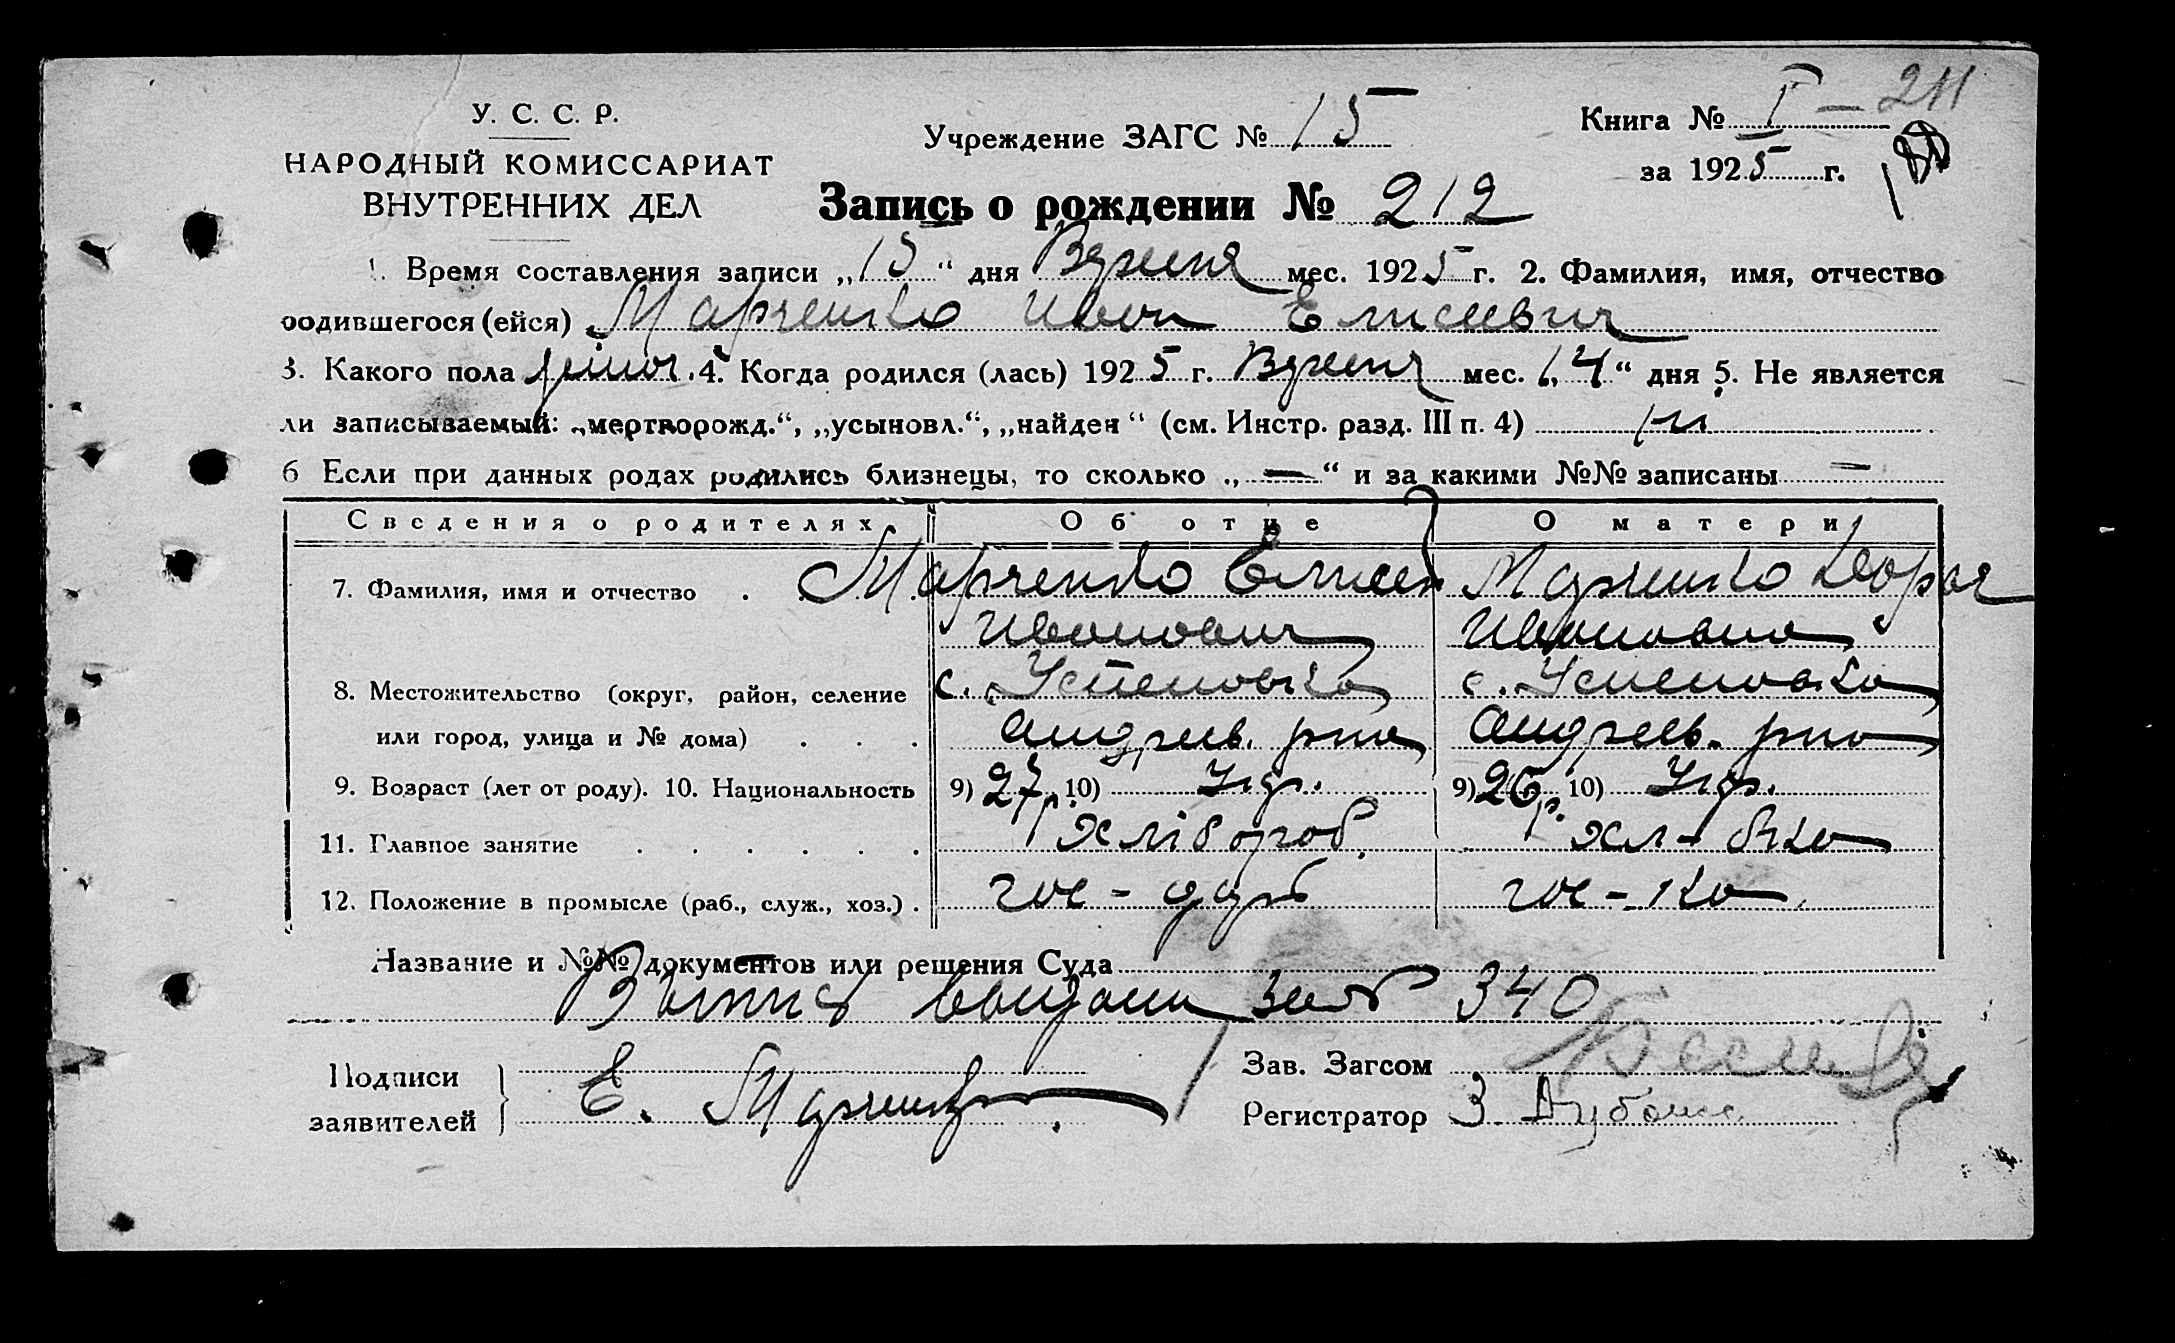 У. С. С. Р.
НАРОДНЫЙ КОМИССАРИАТ
ВНУТРЕННИХ ДЕЛ
Учреждение ЗАГС № 15
Книга № I – 211
за 1925 г.
Запись о рождении № 212
1. Время составления записи „15“ дня Вересня мес. 1925 г. 2. Фамилия, имя, отчество
родившегося (ейся) Марченко Иван Елисеевич
3. Какого пола 4. Когда родился (лась) 1925 г. Вересня мес. „14“ дня 5. Не является
ли записываемый: „мертворожд.“, „усыновл.“, „найден“ (см. Инстр. разд. III п. 4) ні
6 Если при данных родах родились близнецы, то сколько „—“ и за какими №№ записаны —
Сведения о родителях Об отце О матери
7. Фамилия, имя и отчество Марченко Елисей Марченко Дарья
Иванович Ивановна
8. Местожительство (округ, район, селение с. Успеновка с. Успеновка
или город, улица и № дома) Андреев. рна Андреев. рна
9. Возраст (лет от роду). 10. Национальность 9) 27 р. 10) Укр. 9) 26 р. 10) Укр.
11. Главное занятие хлібороб хл-бка
12. Положение в промысле (раб., служ., хоз.) гос-дарь гос-ка
Название и №№ документов или решения Суда
340
Подписи
заявителей Е. Марченко
Зав. Загсом
Регистратор З.